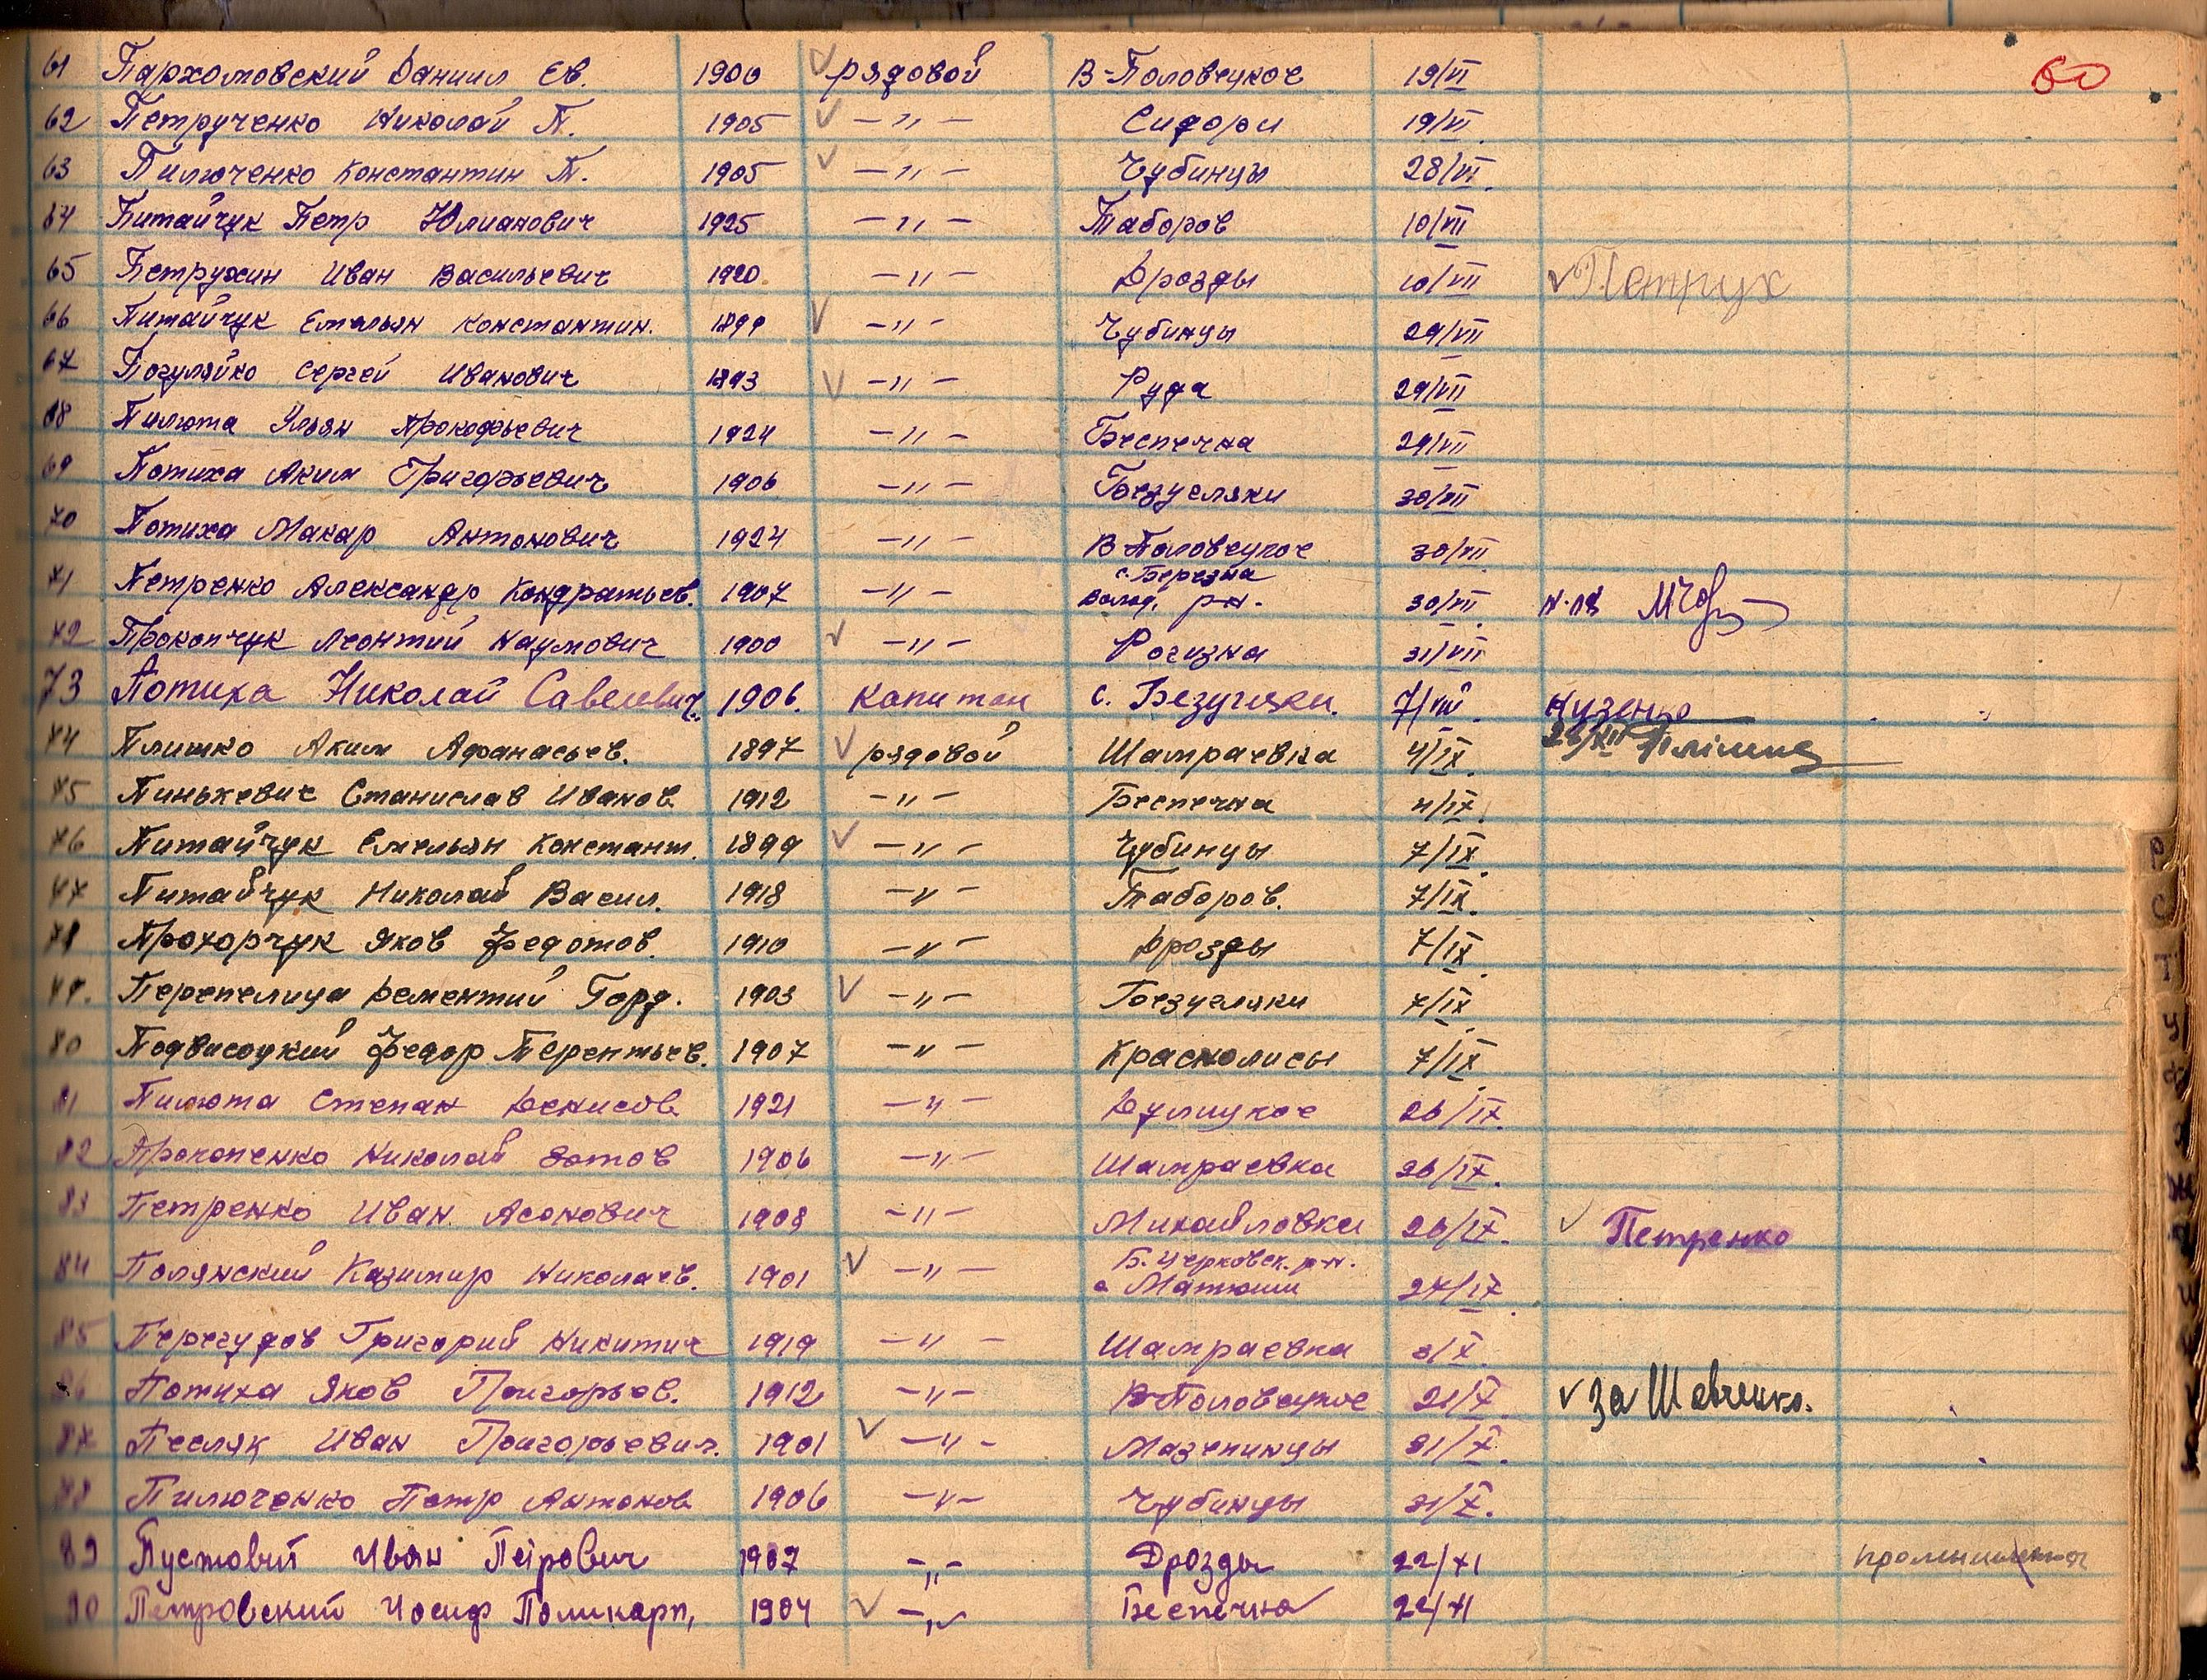 60
61 Пархомовский Даниил Ев. 1900 рядовой В-Половецкое 19/VI
62 Петрученко Николай П. 1905 —〃— Сидори 19/VI.
63 Пилюченко Константин П. 1905 —〃— Чубинцы 28/VI.
64 Питайчук Петр Юлианович 1925 —〃— Таборов 10/VII
65 Петрухин Иван Васильевич 1920 —〃— Дрозды 10/VII Петрух
66 Питайчук Емельян Константин. 1899 —〃— Чубинцы 29/VII
67 Погуляйко Сергей Иванович 1893 —〃— Руда 29/VII
68 Пилюта Ульян Прокофьевич 1924 —〃— Беспечна 29/VII
69 Потиха Аким Григорьевич 1906 —〃— Безугляки 30/VII
70 Потиха Макар Антонович 1924 —〃— В Половецкое 30/VII
71 Петренко Александр Кондратьев. 1907 —〃— с. Березна Волод. р-н. 30/VII.
72 Прокопчук Леонтий Наумович 1900 —〃— Рогизна 31/VII
73 Потиха Николай Савелевич. 1906. капитан с. Безугляки. 7/VIII. Кузенко
74 Плишко Аким Афанасьев. 1897 рядовой Шамраевка 4/IX. 26/XII
75 Пинькевич Станислав Иванов 1912 —〃— Беспечна 4/IX.
76 Питайчук Емельян Констант. 1899 —〃— Чубинцы 7/IX.
77 Питайчук Николай Васил. 1918 —〃— Таборов. 7/IX.
78 Прохорчук Яков Федотов. 1910 —〃— Дрозды 7/IX.
79. Перепелица Дементий Горд. 1903 —〃— Безугляки 7/IX
80 Подвисоцкий Федор Терентьев. 1907 —〃— Краснолисы 7/IX.
81 Пилюта Степан Денисов 1921 —〃— Дулицкое 26/IX.
82 Прокопенко Николай Зотов 1906 —〃— Шамраевка 26/IX.
83 Петренко Иван Асонович 1908 —〃— Михайловка 26/IX. Петренко
84 Полянский Казимир Николаев. 1901 —〃— Б. Церковск. р-н. с Матюши 27/IX.
85 Перегудов Григорий Никитич 1919 —〃— Шамраевка 3/X.
86 Потиха Яков Григорьев. 1912 —〃— В-Половецкое 21/X. за Шевченко.
87 Песляк Иван Григорьевич. 1901 —〃— Мазепинцы 21/X.
88 Пилюченко Петр Антонов 1906 —〃— Чубинцы 21/X.
89 Пустовит Иван Петрович 1907 —〃— Дрозды 22/XI
90 Петровский Иосиф Поликарп, 1904 —〃— Беспечна 22/XI
Р
С
Т
У